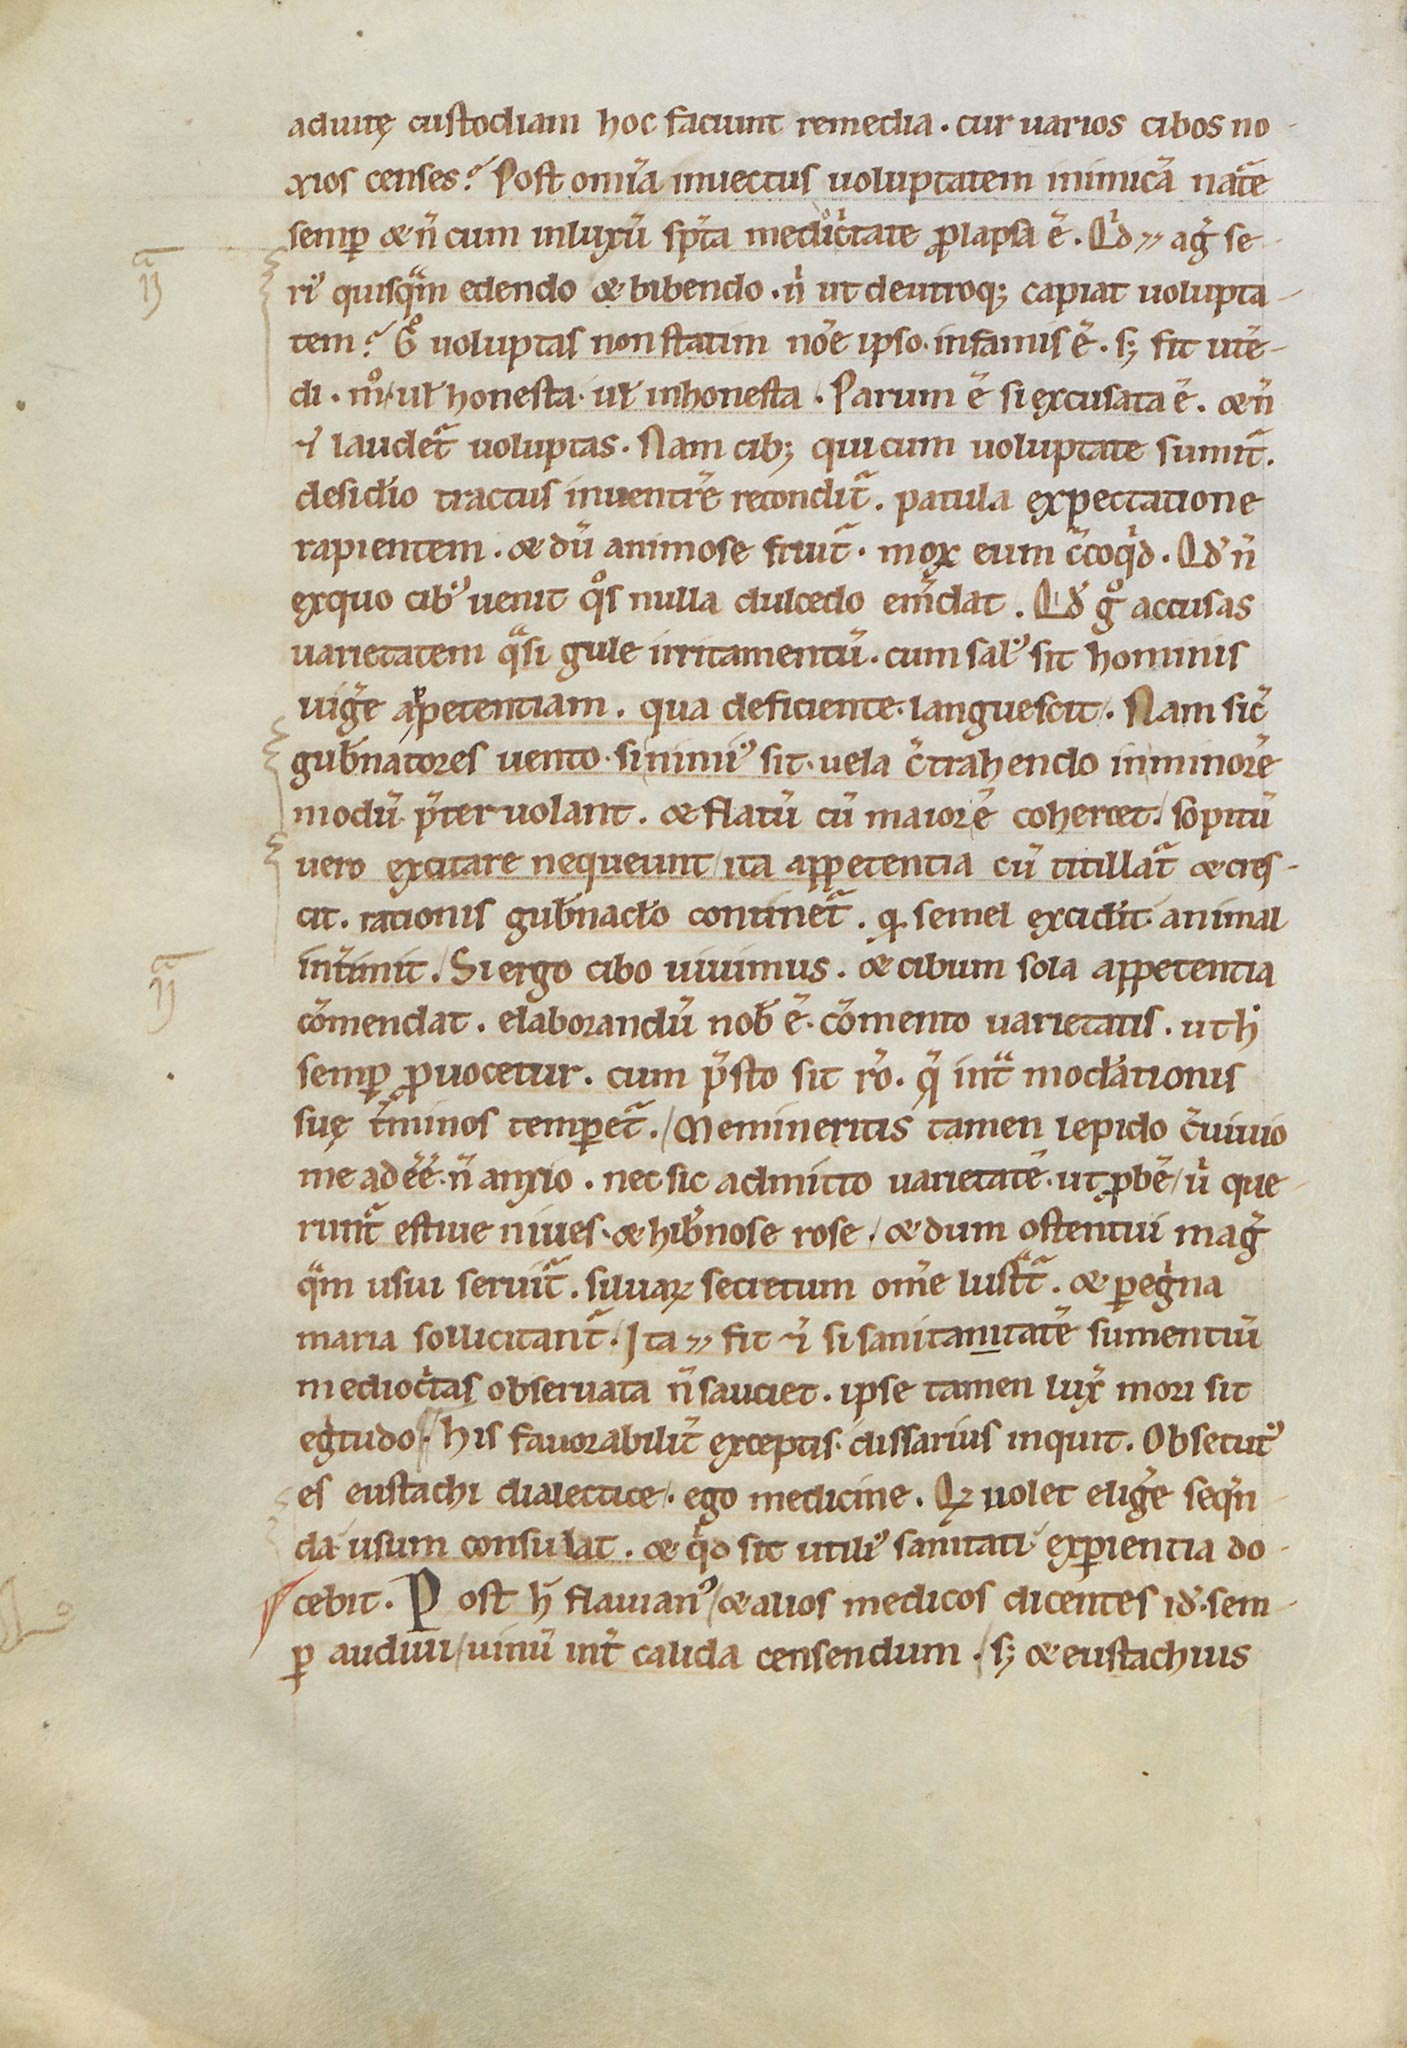 aduitę custodiam hoc faciunt remedia . cur uarios cibos no-
xios censes? Post om̄ia inuectus uoluptatem inimicā nat̄e
semp̱ & n̄ cum inluxū sp̄ta medioc̄tate ꝓlapsa ē . Qd ÷ ag̓ se-
ri' quisq̄m edendo & bibendo . n̓ ut deutroq; capiat uolupta-
tem? Gͦ uoluptas non statim noē ipso . infamis ē . s; fit utē-
di . mͦ . ul' honesta . ul' inhonesta . Parum ē si excusata ē . & n̄
⁊ laudet᷑ uoluptas . Nam cib; qui cum uoluptate sumit᷑ .
desidio tractus inuentrē recondit᷑ . patula expectatione
rapientem . & dū animose fruit᷑ . mox eum c̄coq̓d . Qd' n̄
exquo cib' uenit qͦs nulla dulcedo em̄dat . Qd' gͦ accusas
uarietatem q̄si gule irritamentū . cum sal' sit hominis
uig̓e appetentiam . qua deficiente . languescit . Nam sic̄
gub̄natores uento . si nimi' sit . uela c̄trahendo in minorē
modū p̄ter uolant . & flatū cū maiorē cohercet / sopitū
uero excitare nequeunt / ita appetentia cū titillat᷑ & cres-
cit . rationis gub̄nac̄lo continet᷑ . q̱ semel excidit . animal
int̄imit . Si ergo cibo uiuimus . & cibum sola appetentia
cōmendat . elaborandū nob̄ ē . cōmento uarietatis . ut h̓
semp̱ ꝓuocetur . cum p̄sto sit rō . q̓ int̄ mod̄ationis
suę t̄minos temp̱et᷑ . / Memineritis tamen lepido c̄uiuio
me adeē̄ . n̄ anxio . nec sic admitto uarietatē . ut ꝓbē / u̓ que-
runt᷑ estiue niues . & hib̄nose rose / & dum ostentui mag̓
q̄m usui seruit᷑ . siluaꝝ secretum om̄e lust᷑ . & p̱eg̓na
maria sollicitant᷑ . Ita ÷ fit ⁊ si sanitanitatē sumentiū
medioc̄tas obseruata n̄ sauciet . ipse tamen lux̄ mori sit
eg̓tudo . His fauorabilit̄ exceptis . dissarius inquit . Obsecut'
es eustachi dialectice . ego medicine . Qꝝ uolet elig̓e seq̄n
da usum consulat . & q̓d sit utili' sanitati . exp̱ientia do-
cebit . Post h̄ flauian' / & alios medicos dicentes id' . sem-
p̱ audiui / uinū int̄ calida censendum . / s; & eustachius